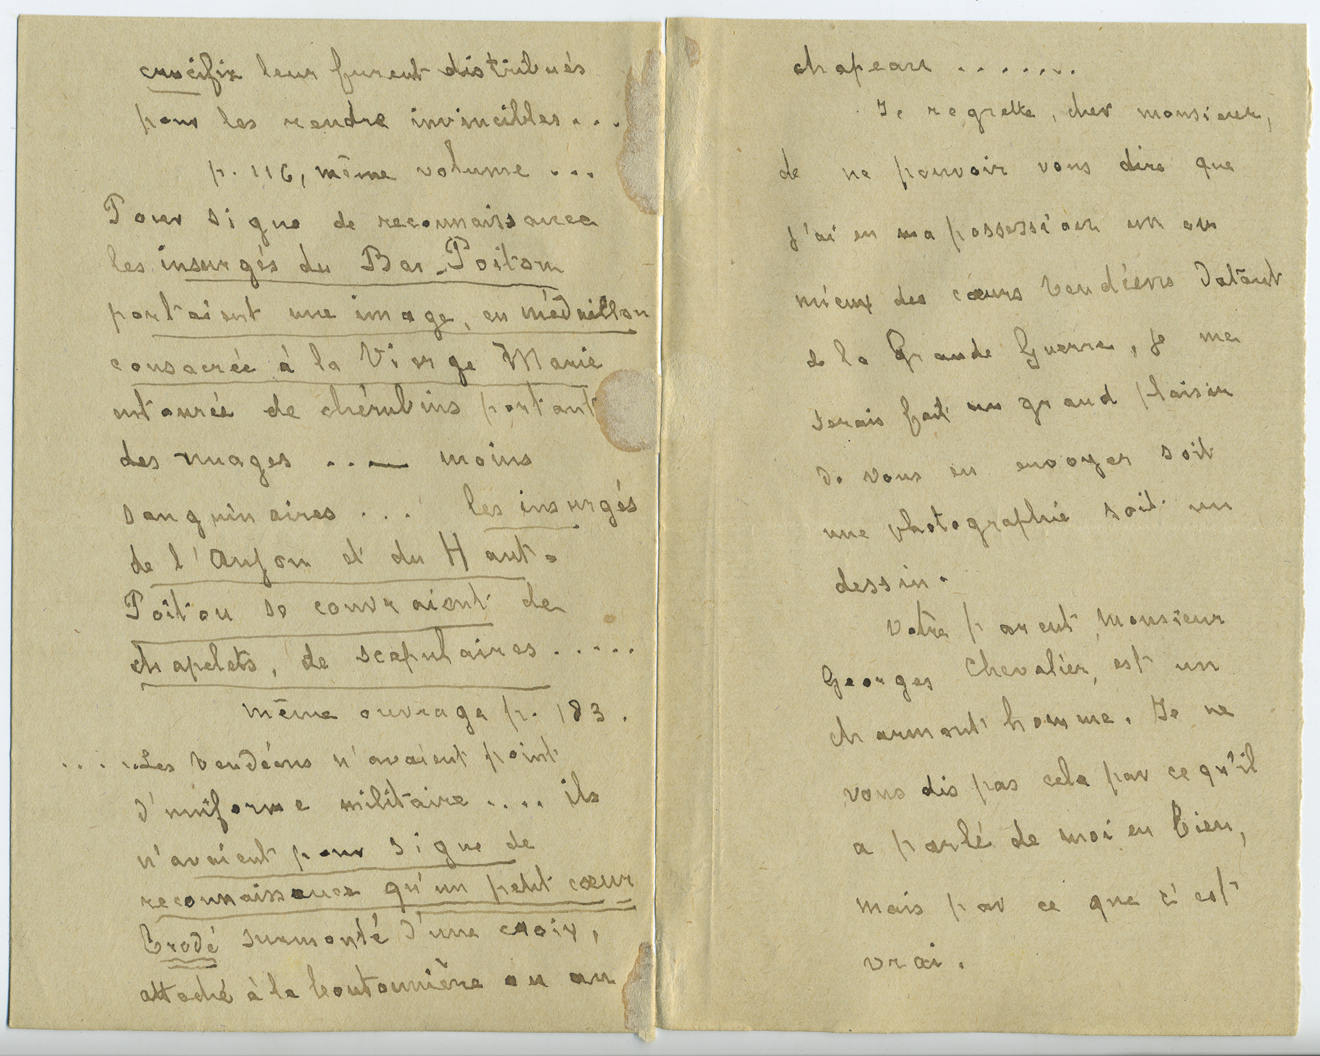 crucifix leur furent distribués
pour les rendre invincibles...
p. 116, même volume ...
Pour signe de reconnaissance
les insurgés du Bas-Poitou
portaient une image, en médaillon
consacrée à la Vierge Marie
entourée de chérubins portant
des nuages ... — moins
sanguinaires ... les insurgés
de l'Anjou et du Haut-
Poitou se couvraient de
chapelets, de scapulaires .....
même ouvrage p. 183.
.....Les Vendéens n'avaient point
d'uniforme militaire .... ils
n'avaient pour signe de
reconnaissance qu'un petit cœur
brodé surmonté d'une croix,
attaché à la boutonnière ou au
chapeau .......
Je regrette, cher monsieur,
de ne pouvoir vous dire que
j'ai en ma possession un ou
mieux des cœurs vendéens datant
de la Grande Guerre, je me
serais fait un grand plaisir
de vous en envoyer soit
une photographie soit un
dessin.
Votre parent, monsieur
Georges Chevalier, est un
charmant homme. Je ne
vous dis pas cela par ce qu'il
a parlé de moi en bien,
mais par ce que c'est
vrai.